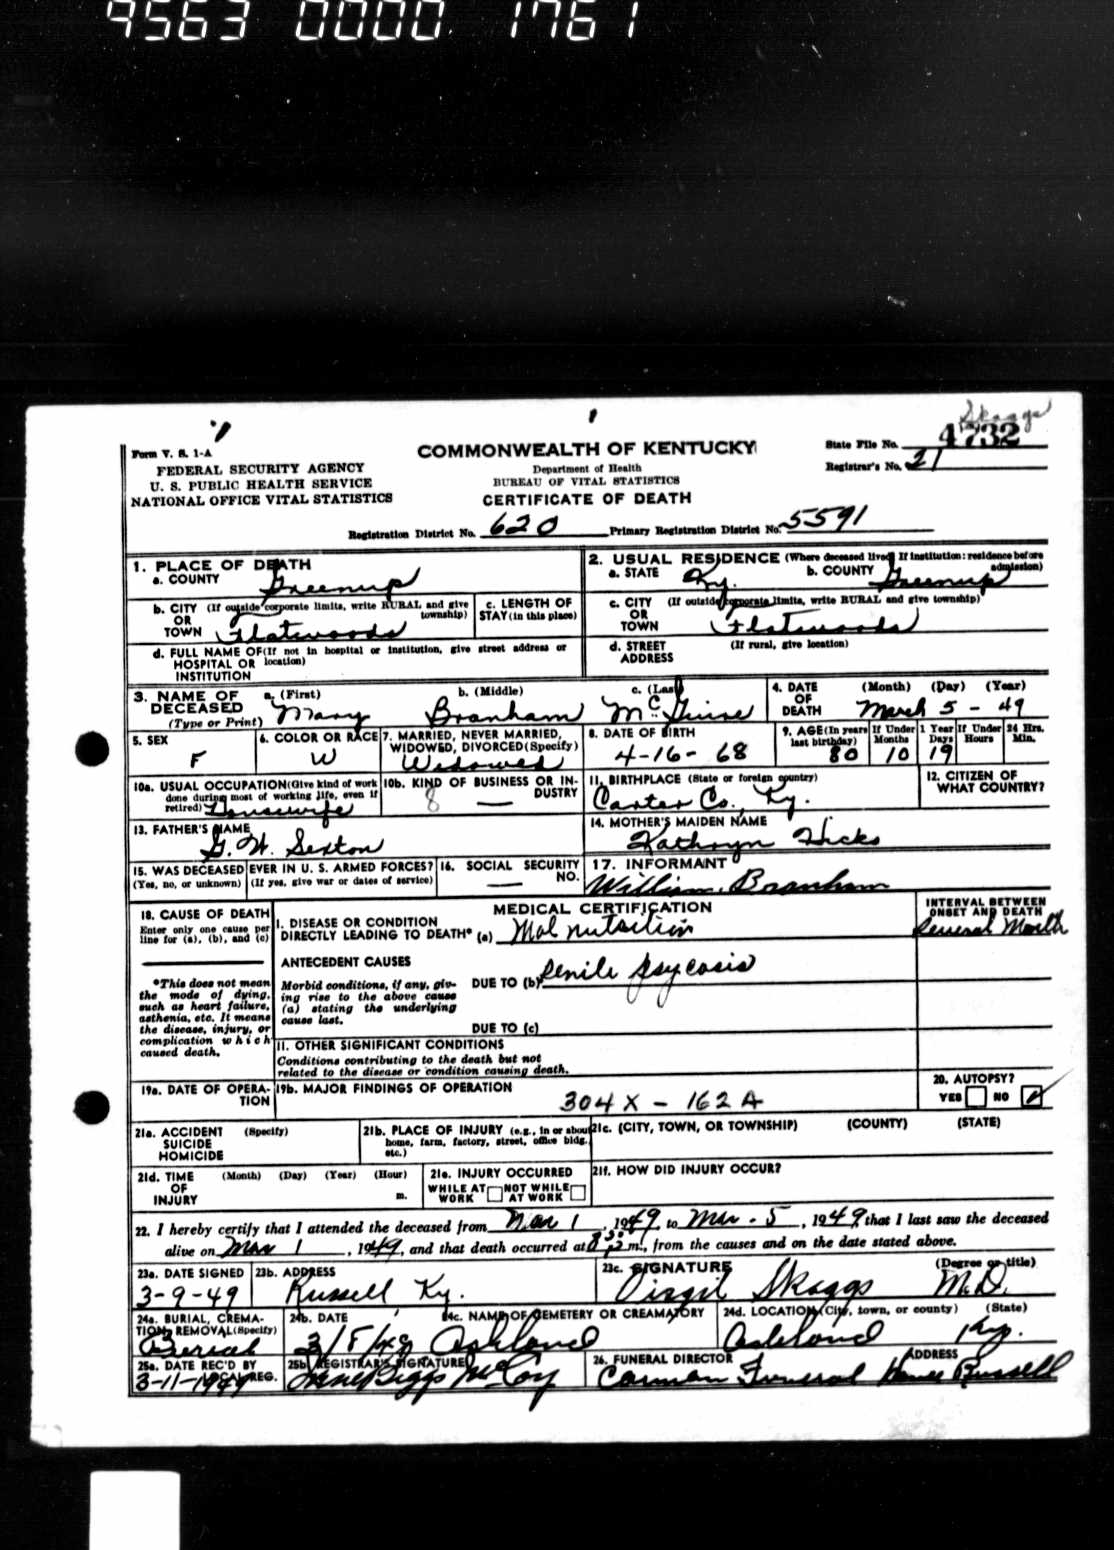 9563 0000 1761
Skaggs
Form V. S. 1-A
FEDERAL SECURITY AGENCY
U. S. PUBLIC HEALTH SERVICE
NATIONAL OFFICE VITAL STATISTICS
COMMONWEALTH OF KENTUCKY
Department of Health
BUREAU OF VITAL STATISTICS
CERTIFICATE OF DEATH
State File No. 4732
Registrar's No. 21
Registration District No. 620 Primary Registration District No. 5591
1. PLACE OF DEATH
a. COUNTY Greenup
2. USUAL RESIDENCE (Where deceased lived. If institution: residence before admission)
a. STATE Ky. b. COUNTY Greenup
b. CITY (If outside corporate limits, write RURAL and give township)
OR
TOWN Flatwoods
c. LENGTH OF
STAY (in this place)
c. CITY (If outside corporate limits, write RURAL and give township)
OR
TOWN Flatwoods
d. FULL NAME OF (If not in hospital or institution, give street address or location)
HOSPITAL OR
INSTITUTION
d. STREET (If rural, give location)
ADDRESS
3. NAME OF DECEASED (Type or Print)
a. (First) b. (Middle) c. (Last)
Mary Branham McGuire
4. DATE OF DEATH (Month) (Day) (Year)
March 5 - 49
5. SEX
F
6. COLOR OR RACE
W
7. MARRIED, NEVER MARRIED, WIDOWED, DIVORCED (Specify)
Widowed
8. DATE OF BIRTH
4-16-68
9. AGE (In years last birthday) If Under 1 Year Months Days If Under 24 Hrs. Hours Min.
80 10 19
10a. USUAL OCCUPATION (Give kind of work done during most of working life, even if retired) Housewife
10b. KIND OF BUSINESS OR INDUSTRY
8 —
11. BIRTHPLACE (State or foreign country)
Carter Co., Ky.
12. CITIZEN OF WHAT COUNTRY?
13. FATHER'S NAME
G. W. Sexton
14. MOTHER'S MAIDEN NAME
Kathryn Hicks
15. WAS DECEASED EVER IN U. S. ARMED FORCES?
(Yes, no, or unknown) (If yes, give war or dates of service)
16. SOCIAL SECURITY NO.
—
17. INFORMANT
William Branham
18. CAUSE OF DEATH
Enter only one cause per line for (a), (b), and (c)
*This does not mean the mode of dying, such as heart failure, asthenia, etc. It means the disease, injury, or complication which caused death.
MEDICAL CERTIFICATION
INTERVAL BETWEEN ONSET AND DEATH
I. DISEASE OR CONDITION
DIRECTLY LEADING TO DEATH* (a) Mal nutrition Several Month
ANTECEDENT CAUSES
Morbid conditions, if any, giving rise to the above cause (a) stating the underlying cause last.
DUE TO (b) Senile psycosis
DUE TO (c)
II. OTHER SIGNIFICANT CONDITIONS
Conditions contributing to the death but not related to the disease or condition causing death.
19a. DATE OF OPERATION
19b. MAJOR FINDINGS OF OPERATION
304X - 162A
20. AUTOPSY?
YES NO
21a. ACCIDENT (Specify)
SUICIDE
HOMICIDE
21b. PLACE OF INJURY (e.g., in or about home, farm, factory, street, office bldg., etc.)
21c. (CITY, TOWN, OR TOWNSHIP) (COUNTY) (STATE)
21d. TIME (Month) (Day) (Year) (Hour)
OF
INJURY m.
21e. INJURY OCCURRED
WHILE AT WORK NOT WHILE AT WORK
21f. HOW DID INJURY OCCUR?
22. I hereby certify that I attended the deceased from Mar 1, 1949, to Mar. 5, 1949 that I last saw the deceased
alive on Mar 1, 1949, and that death occurred at m., from the causes and on the date stated above.
23a. DATE SIGNED
3-9-49
23b. ADDRESS
Russell Ky.
23c. SIGNATURE (Degree or title)
Virgil Skaggs M.D.
24a. BURIAL, CREMATION, REMOVAL (Specify)
Burial
24b. DATE
3/8/49
24c. NAME OF CEMETERY OR CREAMATORY
Ashland
24d. LOCATION (City, town, or county) (State)
Ashland Ky.
25a. DATE REC'D BY LOCAL REG.
3-11-1949
25b. REGISTRAR'S SIGNATURE
Biggs McCoy
26. FUNERAL DIRECTOR ADDRESS
Carman Funeral Home Russell